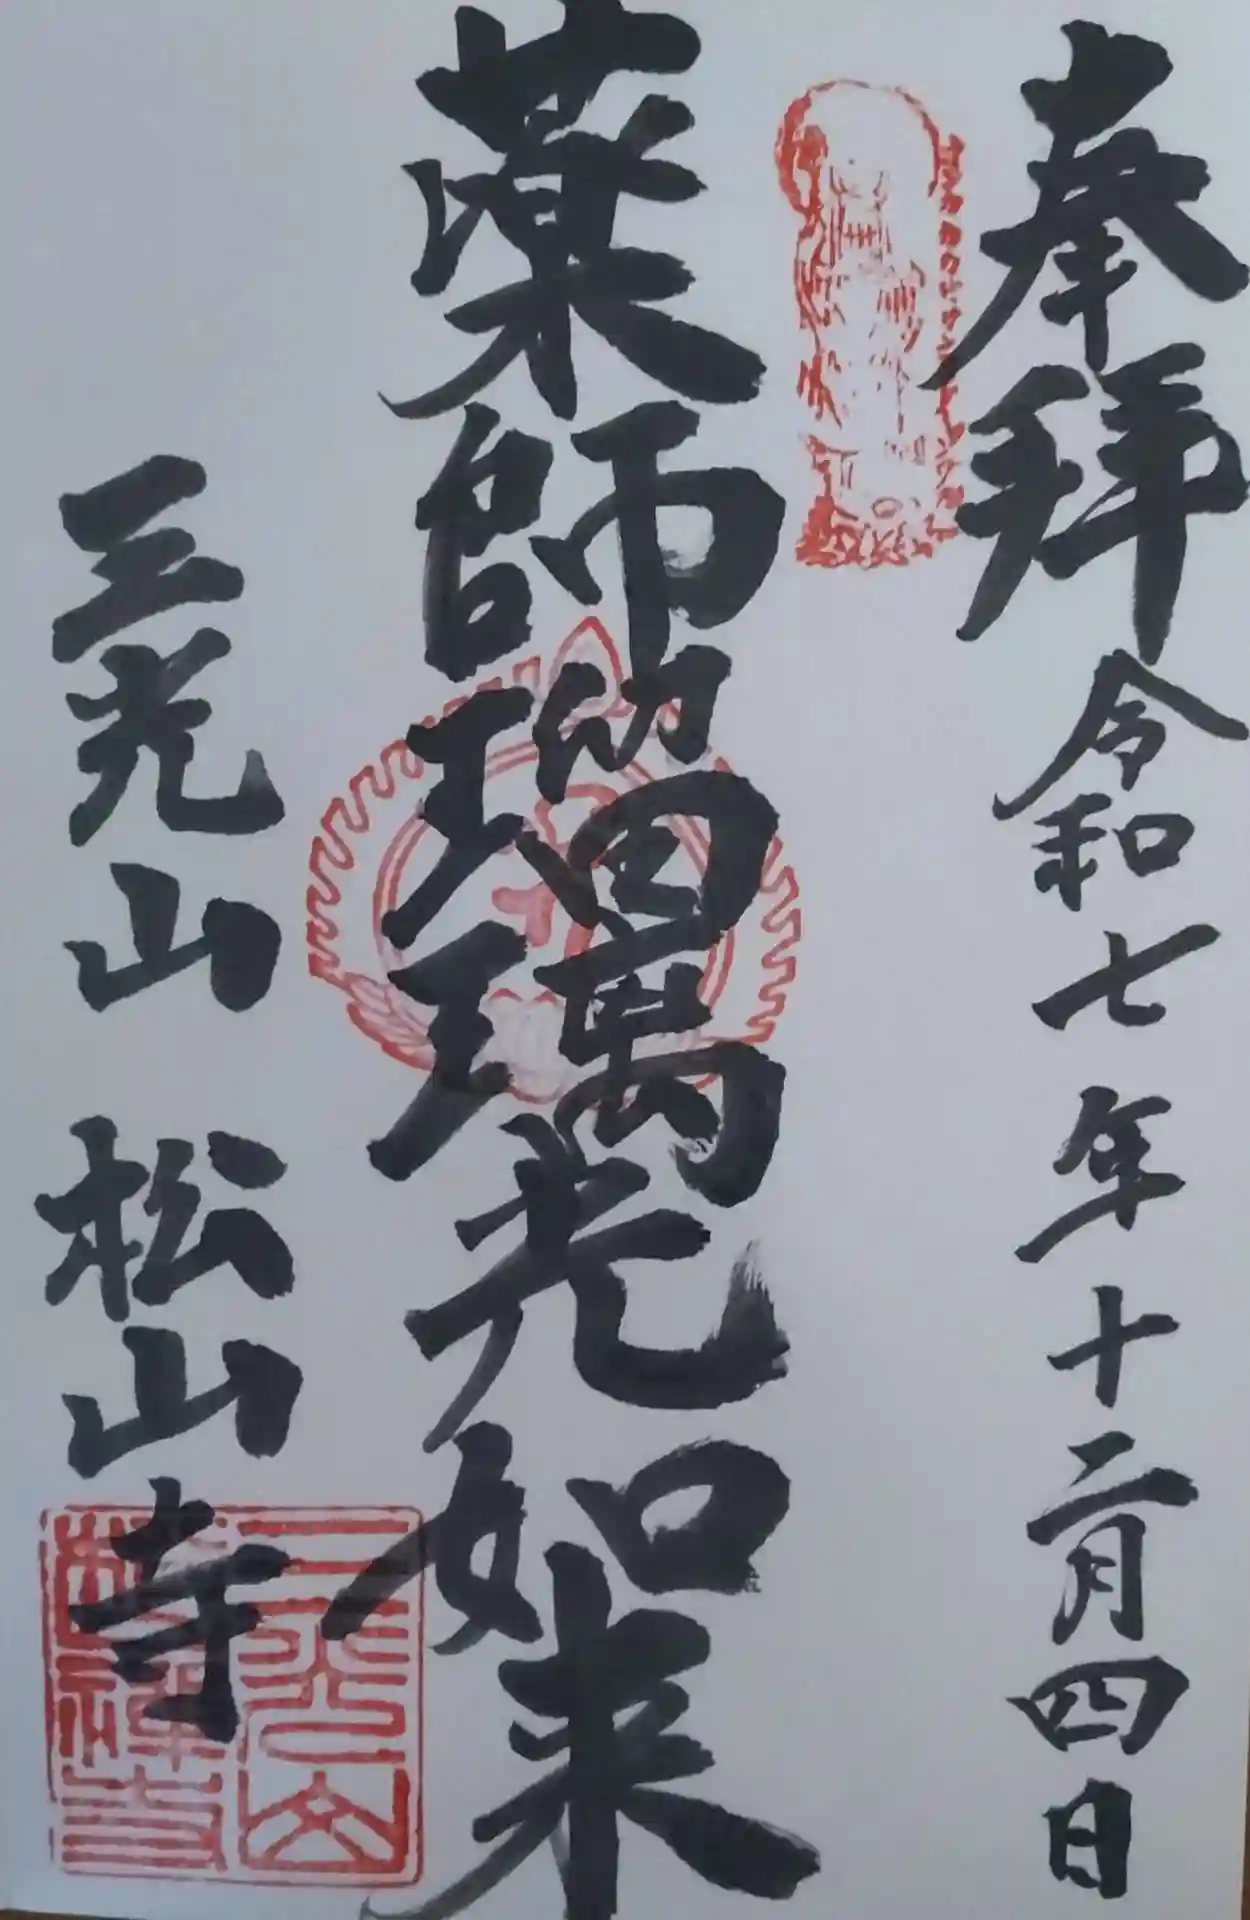 奉拝 令和七年十二月四日
薬師瑠璃光如来
三光山 松山寺